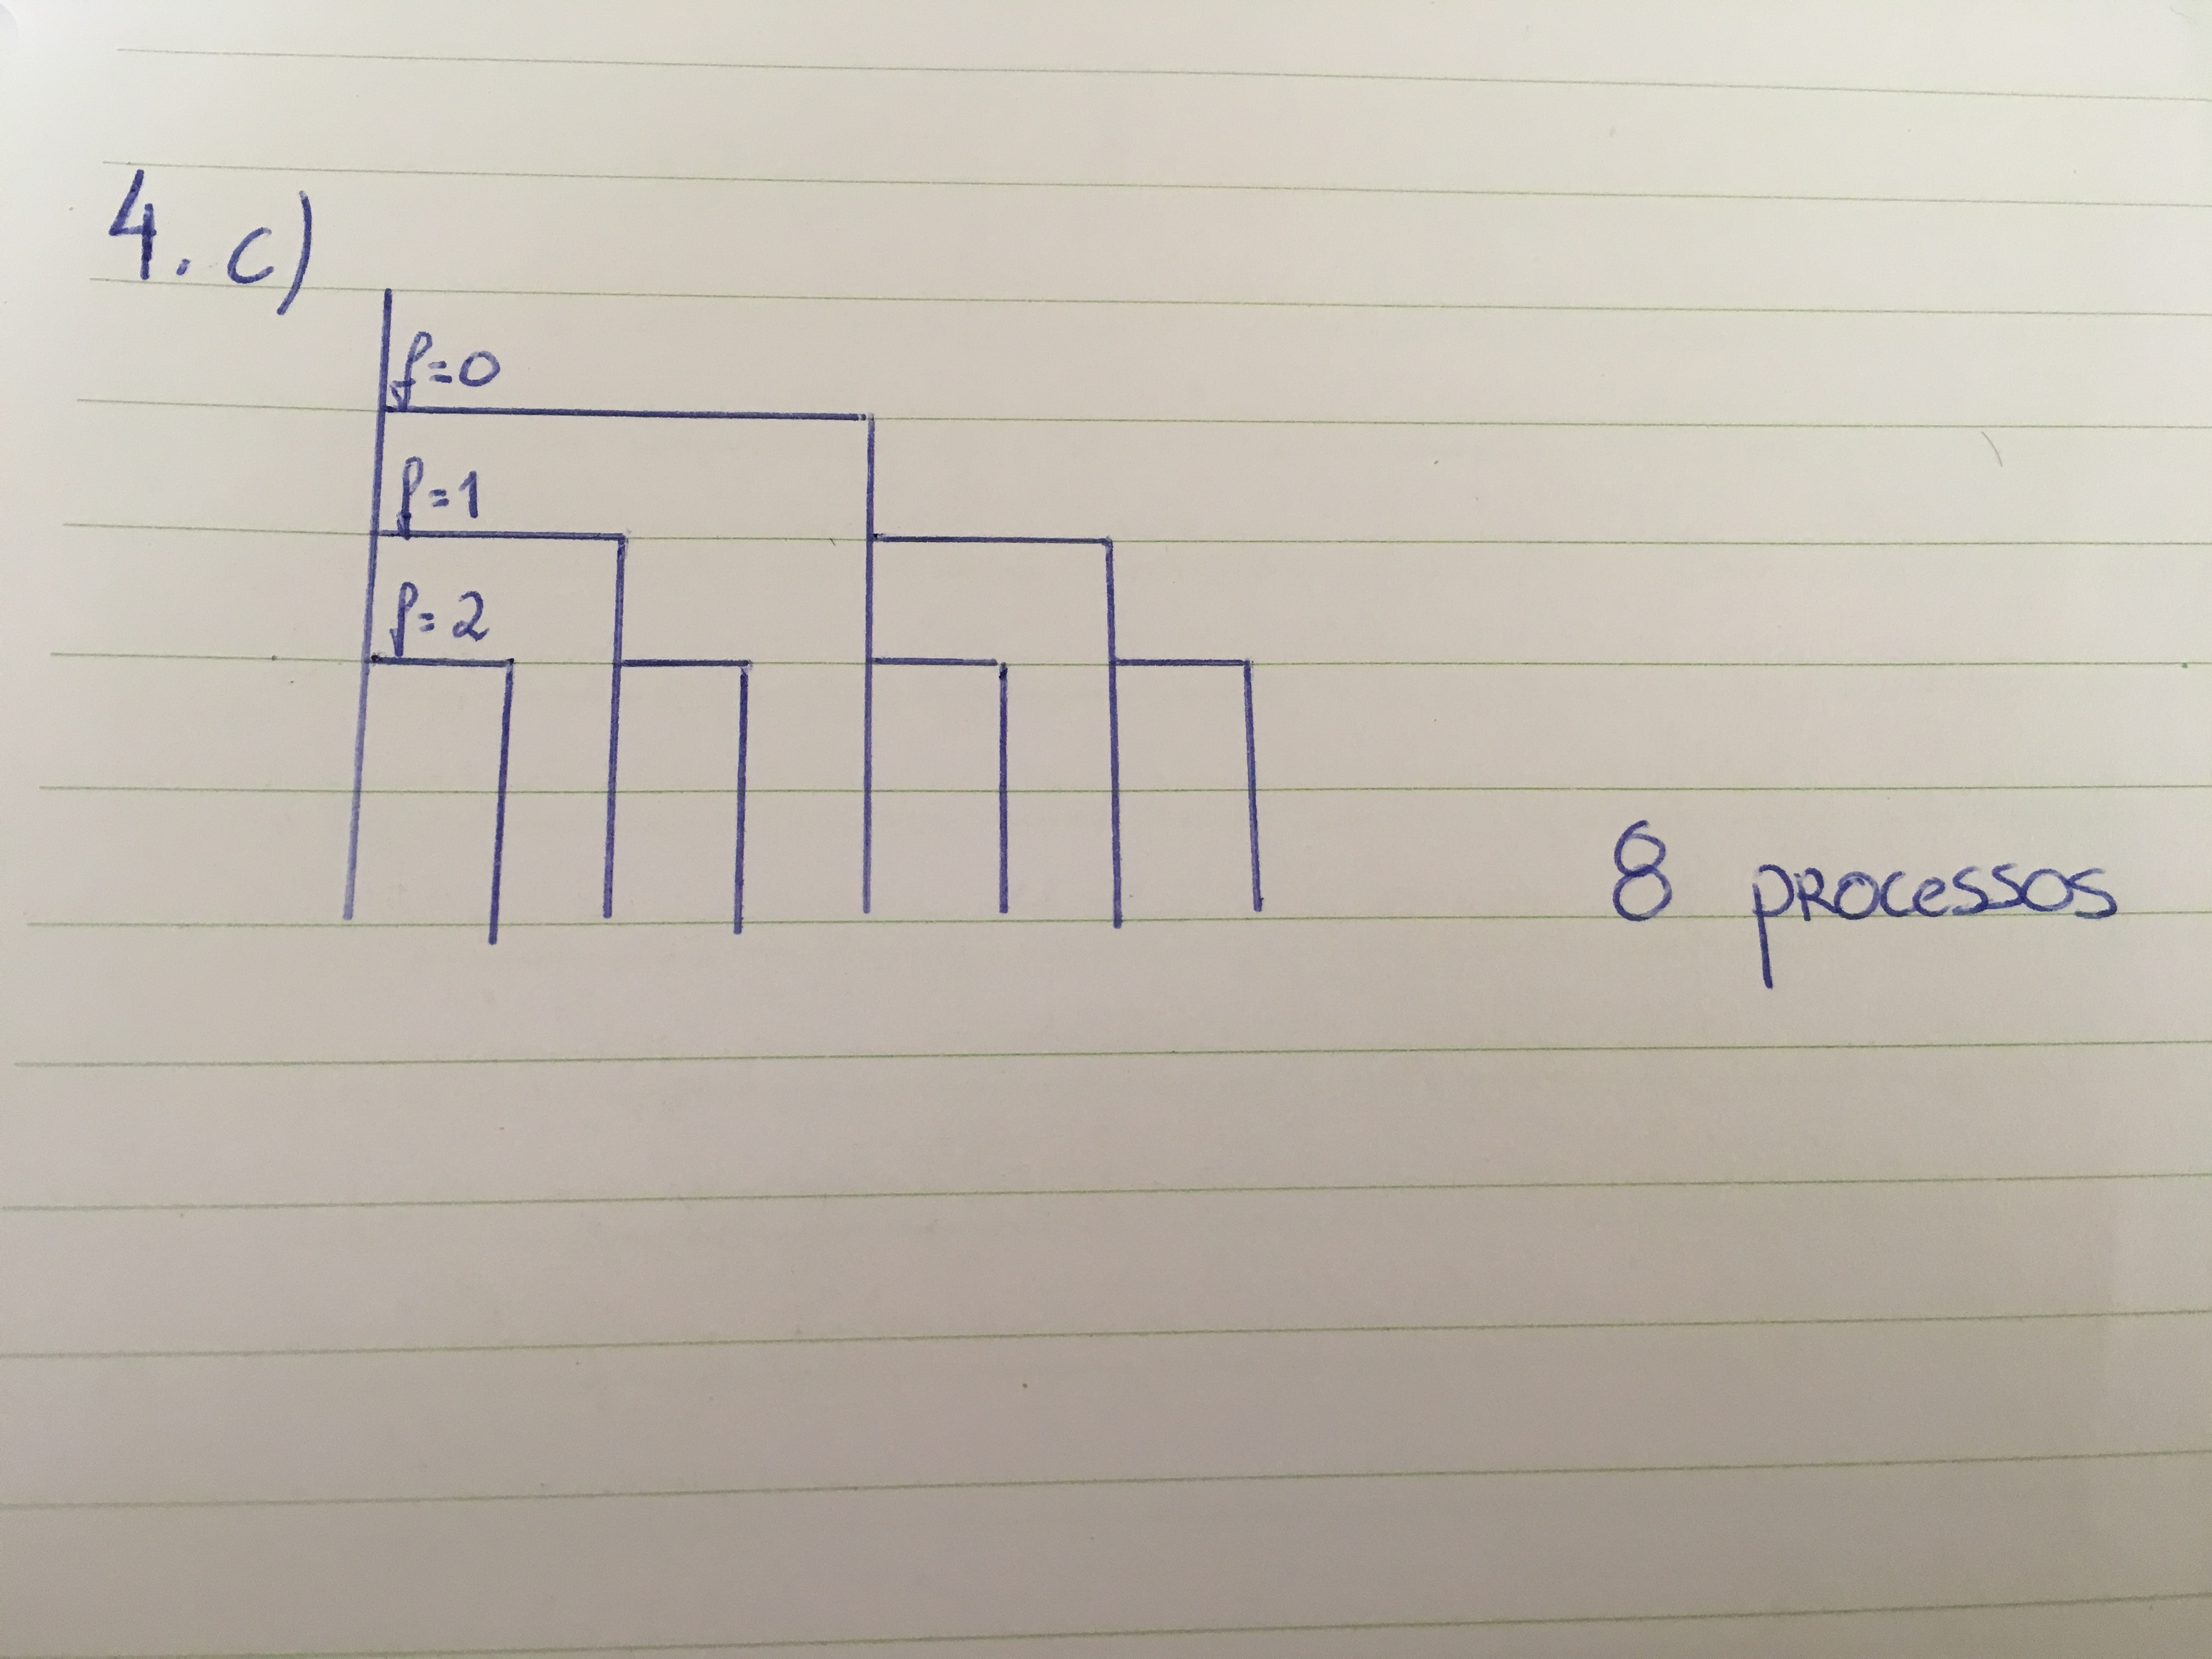 4. c)
f=0
f=1
f=2
8 processos